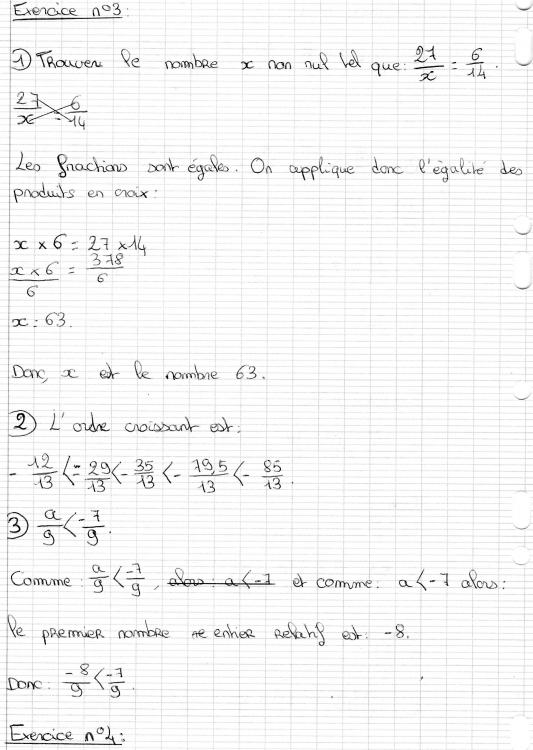 Exercice n°3:
① Trouver le nombre x non nul tel que: 27/x = 6/14.
27/x = 6/14
Les fractions sont égales. On applique donc l'égalité des
produits en croix:
x × 6 = 27 × 14
x × 6/6 = 378/6
x = 63.
Donc, x est le nombre 63.
② L'ordre croissant est:
- 12/13 < - 29/13 < - 35/13 < - 79,5/13 < - 85/13.
③ a/9 < -7/9.
Comme: a/9 < -7/9, alors: a < -7 et comme: a < -7 alors:
le premier nombre entier relatif est: -8.
Donc: -8/9 < -7/9.
Exercice n°4: